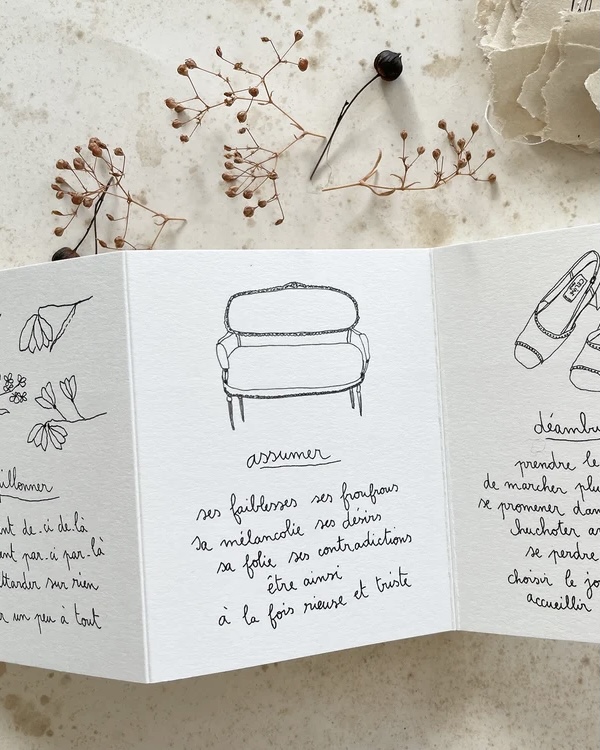 nt de.ci de.là
ent par.ci par.là
attarder sur rien
r un peu à tout
assumer
ses faiblesses ses froufrous
sa mélancolie ses désirs
sa folie ses contradictions
être ainsi
à la fois rieuse et triste
déambu
prendre le
de marcher plu
se promener dan
chuchoter a
se perdre
choisir le jo
accueillir